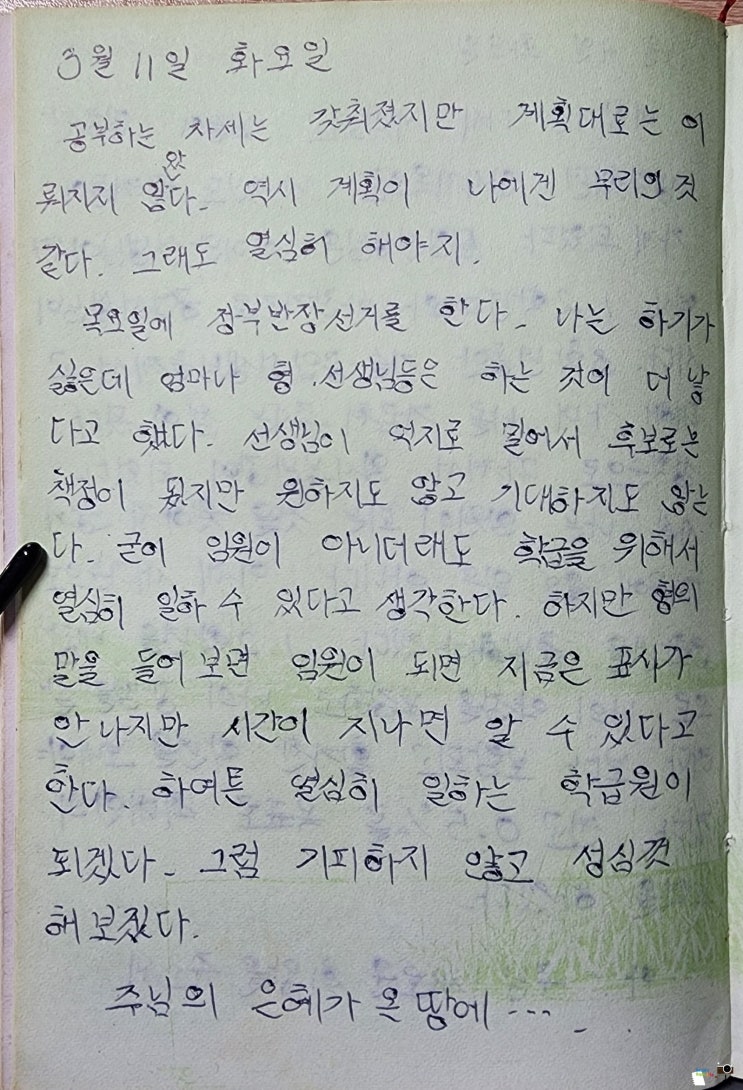 3월 11일 화요일
공부하는 자세는 갖춰졌지만 계획대로는 이
뤄지지 않았다. 역시 계획이 나에겐 무리인 것
같다. 그래도 열심히 해야지.
목요일에 정·부반장 선거를 한다. 나는 하기가
싫은데 엄마나 형, 선생님등은 하는 것이 더 낳
다고 했다. 선생님이 억지로 밀어서 후보로는
책정이 됬지만 원하지도 않고 기대하지도 않는
다. 굳이 임원이 아니더래도 학급을 위해서
열심히 일하 수 있다고 생각한다. 하지만 형의
말을 들어 보면 임원이 되면 지금은 표시가
안 나지만 시간이 지나면 알 수 있다고
한다. 하여튼 열심히 일하는 학급원이
되겠다. 그럼 기피하지 않고 성심껏
해 보겠다.
주님의 은혜가 온 땅에 ...